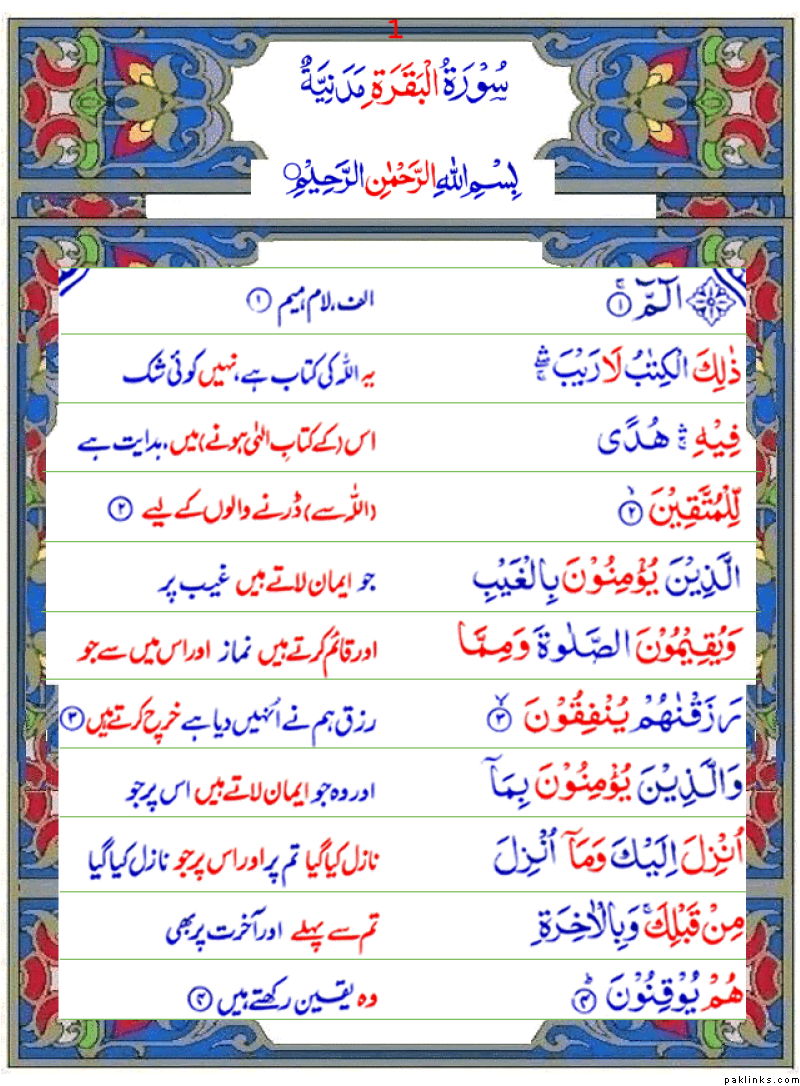 1
سُوْرَةُ الْبَقَرَةِ مَدَنِيَّةٌ
بِسْمِ اللهِ الرَّحْمٰنِ الرَّحِيْمِ
الٓمّٓ ۚ ۱ الف، لام، میم ۱
ذٰلِكَ الْكِتٰبُ لَا رَيْبَ ۛۖۚ یہ اللہ کی کتاب ہے، نہیں کوئی شک
فِيْهِ ۛۚ هُدًى اس (کے کتابِ الٰہی ہونے) میں، ہدایت ہے
لِّلْمُتَّقِيْنَ ۙ ۲ (اللہ سے) ڈرنے والوں کے لیے ۲
الَّذِيْنَ يُؤْمِنُوْنَ بِالْغَيْبِ جو ایمان لاتے ہیں غیب پر
وَيُقِيْمُوْنَ الصَّلٰوةَ وَمِمَّا اور قائم کرتے ہیں نماز اور اس میں سے جو
رَزَقْنٰهُمْ يُنْفِقُوْنَ ۙ ۳ رزق ہم نے اُنہیں دیا ہے خرچ کرتے ہیں ۳
وَالَّذِيْنَ يُؤْمِنُوْنَ بِمَآ اور وہ جو ایمان لاتے ہیں اس پر جو
اُنْزِلَ اِلَيْكَ وَمَآ اُنْزِلَ نازل کیا گیا تم پر اور اس پر جو نازل کیا گیا
مِنْ قَبْلِكَ ۚ وَبِالْاٰخِرَةِ تم سے پہلے اور آخرت پر بھی
هُمْ يُوْقِنُوْنَ ؕ ۴ وہ یقین رکھتے ہیں ۴
paklinks.com